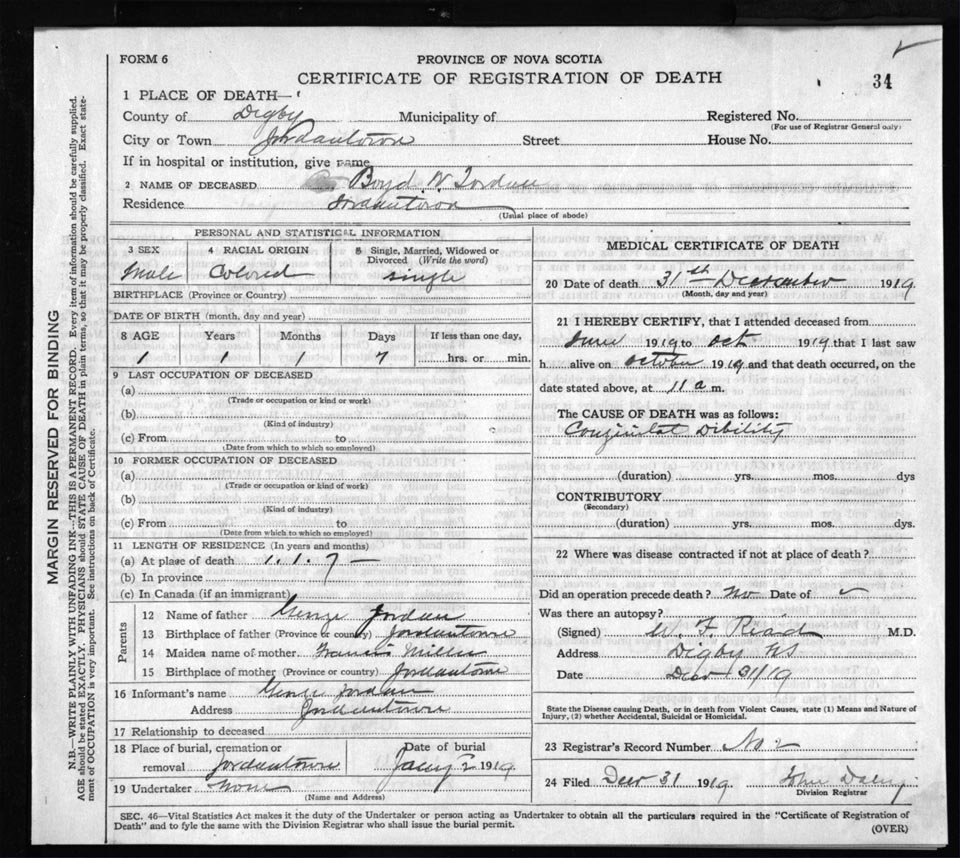 FORM 6
PROVINCE OF NOVA SCOTIA
CERTIFICATE OF REGISTRATION OF DEATH
34
1 PLACE OF DEATH—
County of Digby Municipality of Registered No.
(For use of Registrar General only)
City or Town Jordantown Street House No.
If in hospital or institution, give name
2 NAME OF DECEASED Boyd W. Jordan
Residence Jordantown
(Usual place of abode)
PERSONAL AND STATISTICAL INFORMATION
3 SEX 4 RACIAL ORIGIN 5 Single, Married, Widowed or Divorced (Write the word)
Male Colored single
BIRTHPLACE (Province or Country)
DATE OF BIRTH (month, day and year)
8 AGE Years Months Days If less than one day,
1 1 1 7 hrs. or min.
9 LAST OCCUPATION OF DECEASED
(a)
(Trade or occupation or kind or work)
(b)
(Kind of industry)
(c) From to
(Date from which to which so employed)
10 FORMER OCCUPATION OF DECEASED
(a)
(Trade or occupation or kind of work)
(b)
(Kind of industry)
(c) From to
(Date from which to which so employed)
11 LENGTH OF RESIDENCE (In years and months)
(a) At place of death 1. 1. 7 —
(b) In province
(c) In Canada (if an immigrant)
Parents
12 Name of father George Jordan
13 Birthplace of father (Province or country) Jordantown
14 Maiden name of mother Francis Miller
15 Birthplace of mother (Province or country) Jordantown
16 Informant's name George Jordan
Address Jordantown
17 Relationship to deceased
18 Place of burial, cremation or Date of burial
removal Jordantown Jany 2 1919
19 Undertaker None
(Name and Address)
MEDICAL CERTIFICATE OF DEATH
20 Date of death 31th December 1919
(Month, day and year)
21 I HEREBY CERTIFY, that I attended deceased from
June 1919 to Oct 1919 that I last saw
h alive on October 1919 and that death occurred, on the
date stated above, at 11 a m.
The CAUSE OF DEATH was as follows:
Conginital Dibility
(duration) yrs. mos. dys
CONTRIBUTORY
(Secondary)
(duration) yrs. mos. dys.
22 Where was disease contracted if not at place of death?
Did an operation precede death? No Date of
Was there an autopsy?
(Signed) W. F. Read M.D.
Address Digby NS
Date Dec 31/19
State the Disease causing Death, or in death from Violent Causes, state (1) Means and Nature of
Injury, (2) whether Accidental, Suicidal or Homicidal.
23 Registrar's Record Number No 2
24 Filed Dec 31 1919 John Daley
Division Registrar
SEC. 46—Vital Statistics Act makes it the duty of the Undertaker or person acting as Undertaker to obtain all the particulars required in the "Certificate of Registration of
Death" and to fyle the same with the Division Registrar who shall issue the burial permit.
(OVER)
MARGIN RESERVED FOR BINDING
N.B.—WRITE PLAINLY WITH UNFADING INK—THIS IS A PERMANENT RECORD. Every item of information should be carefully supplied.
AGE should be stated EXACTLY. PHYSICIANS should STATE CAUSE OF DEATH in plain terms, so that it may be properly classified. Exact state-
ment of OCCUPATION is very important. See instructions on back of Certificate.